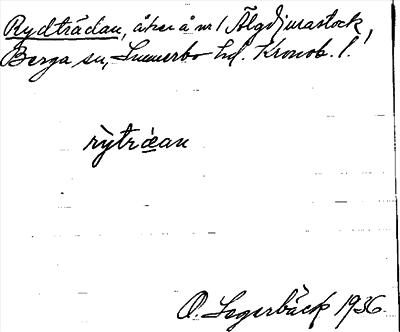 Rydträdan, åker å nr 1 Älgdjurastock,
Berga sn, Sunnerbo hd. Kronob. l.
rỳtræ̀an
O. Segerbäck 1936.